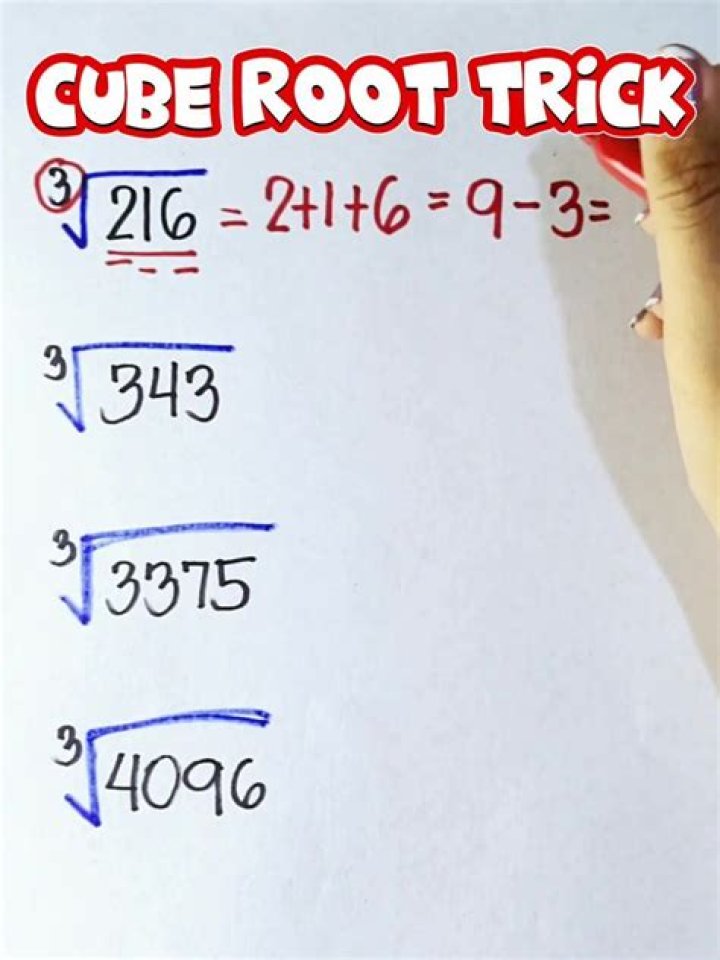 CUBE ROOT TRiCK
∛216 = 2+1+6 = 9-3=
∛343
∛3375
∛4096